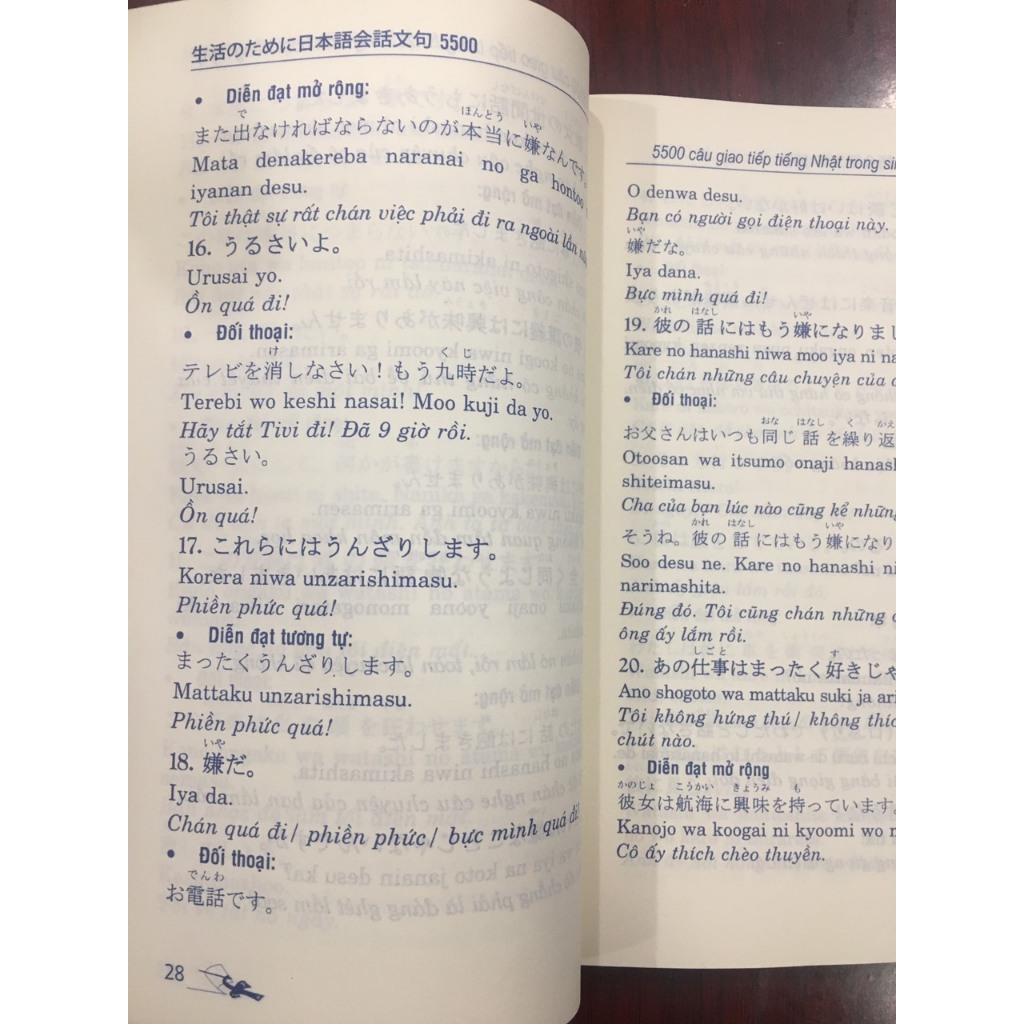 生活のために日本語会話文句 5500
• Diễn đạt mở rộng:
で ほんとう いや
また出なければならないのが本当に嫌なんです。
Mata denakereba naranai no ga hontoo
iyanan desu.
Tôi thật sự rất chán việc phải đi ra ngoài lần
16. うるさいよ。
Urusai yo.
Ồn quá đi!
• Đối thoại:
け くじ
テレビを消しなさい！もう九時だよ。
Terebi wo keshi nasai! Moo kuji da yo.
Hãy tắt Tivi đi! Đã 9 giờ rồi.
うるさい。
Urusai.
Ồn quá!
17. これらにはうんざりします。
Korera niwa unzarishimasu.
Phiền phức quá!
• Diễn đạt tương tự:
まったくうんざりします。
Mattaku unzarishimasu.
Phiền phức quá!
いや
18. 嫌だ。
Iya da.
Chán quá đi/ phiền phức/ bực mình quá đi!
• Đối thoại:
でんわ
お電話です。
28
5500 câu giao tiếp tiếng Nhật trong
O denwa desu.
Bạn có người gọi điện thoại này.
いや
嫌だな。
Iya dana.
Bực mình quá đi!
かれ はなし いや
19. 彼の話にはもう嫌になりまし
Kare no hanashi niwa moo iya ni
Tôi chán những câu chuyện của
• Đối thoại:
おな はなし く かえ
お父さんはいつも同じ話を繰り返
Otoosan wa itsumo onaji hanash
shiteimasu.
Cha của bạn lúc nào cũng kể những
かれ はなし いや
そうね。彼の話にはもう嫌になり
Soo desu ne. Kare no hanashi ni
narimashita.
Đúng đó. Tôi cũng chán những
ông ấy lắm rồi.
しごと す
20. あの仕事はまったく好きじゃ
Ano shogoto wa mattaku suki ja
Tôi không hứng thú/ không thíc
chút nào.
• Diễn đạt mở rộng
かのじょ こうかい きょうみ も
彼女は航海に興味を持っています。
Kanojo wa koogai ni kyoomi wo
Cô ấy thích chèo thuyền.